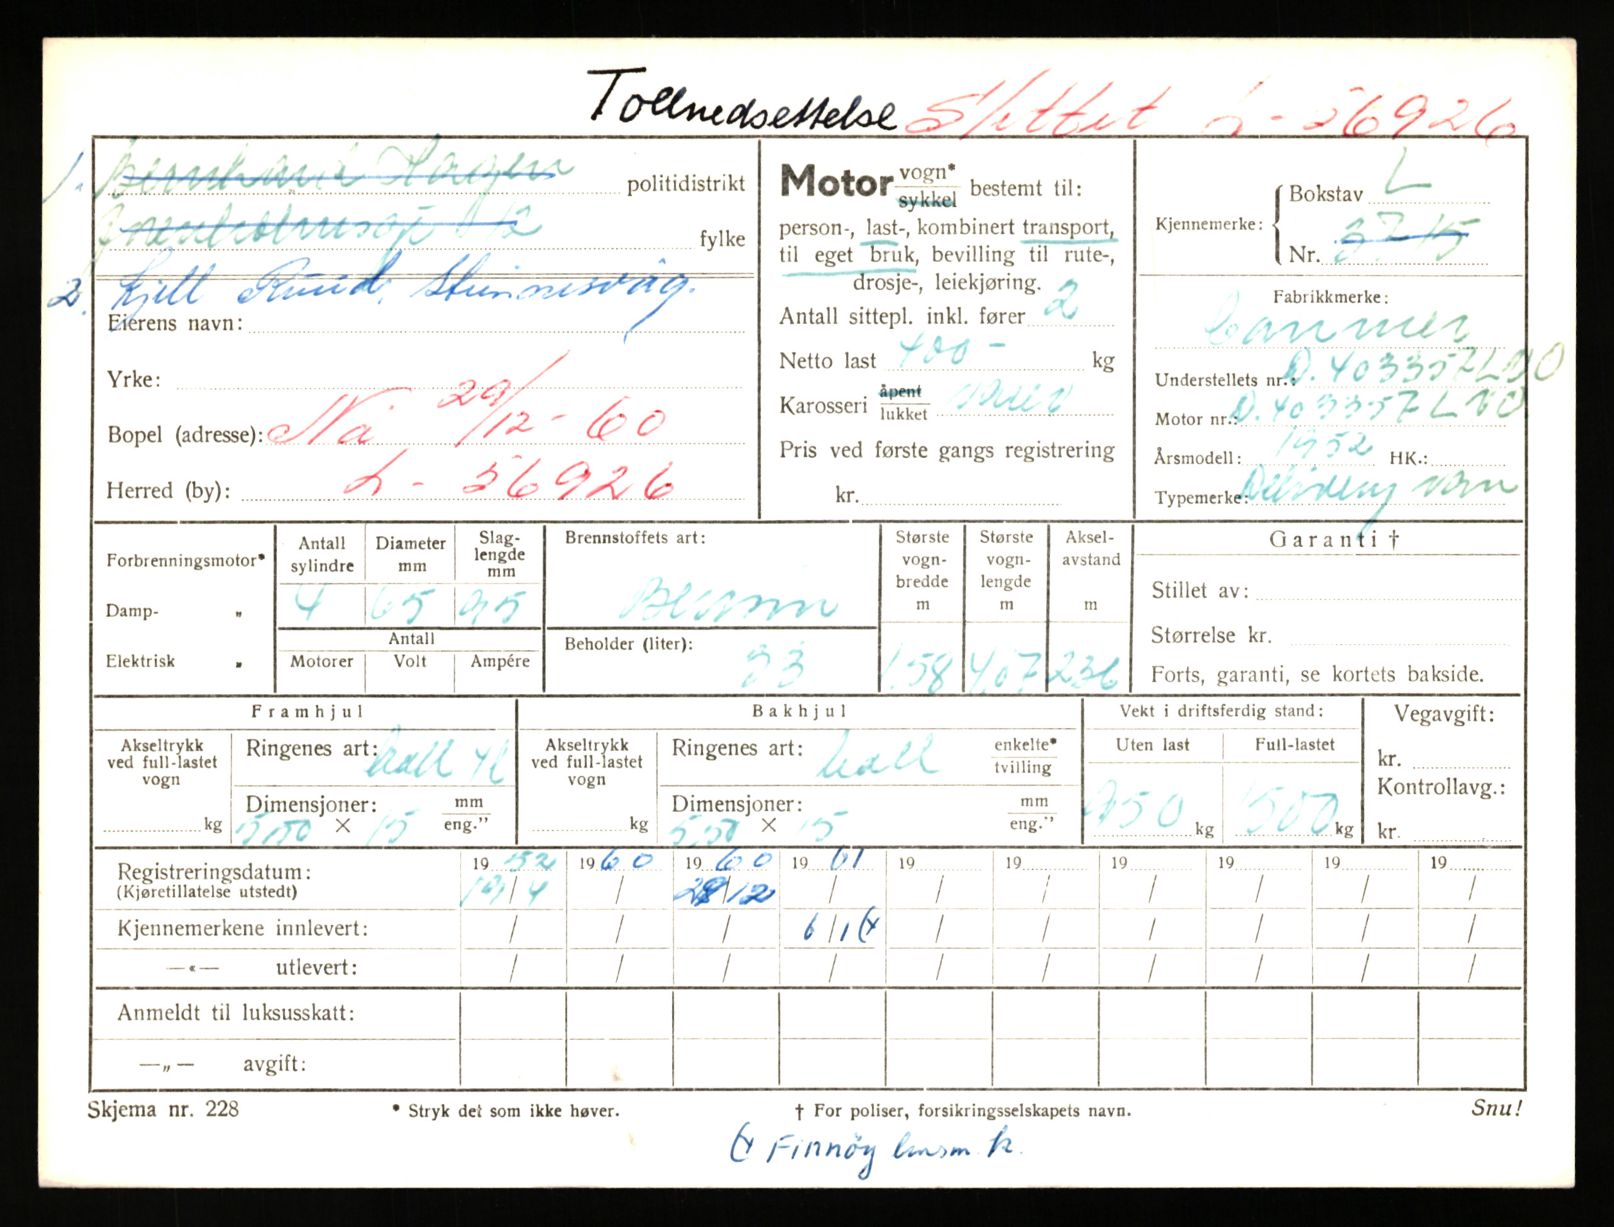 Tollnedsettelse Slettet L - 56926
1. Bernhard Hagen politidistrikt
12 fylke
2. Kjell Ruud,
Eierens navn:
Yrke:
Bopel (adresse): Nå 29/12 - 60
Herred (by): L - 56926
Motor vogn* sykkel bestemt til:
person-, last-, kombinert transport,
til eget bruk, bevilling til rute-,
drosje-, leiekjøring.
Antall sittepl. inkl. fører 2
Netto last 400 - kg
Karosseri åpent lukket varev
Pris ved første gangs registrering
kr.
Kjennemerke: Bokstav L
Nr. 3715
Fabrikkmerke:
Commer
Understellets nr.: D. 403357LVO
Motor nr.: D. 403357LVO
Årsmodell: 1952 HK.:
Typemerke: Delivery van
Forbrenningsmotor*
Damp- „
Elektrisk „
Antall sylindre Diameter mm Slaglengde mm
4 65 95
Antall
Motorer Volt Ampére
Brennstoffets art:
Bensin
Beholder (liter):
33
Største vognbredde m
1.58
Største vognlengde m
4.07
Akselavstand m
2.36
Garanti †
Stillet av:
Størrelse kr.
Forts, garanti, se kortets bakside.
Framhjul
Akseltrykk ved full-lastet vogn
kg
Ringenes art:
Dimensjoner: mm eng.”
5,00 × 15
Bakhjul
Akseltrykk ved full-lastet vogn
kg
Ringenes art: enkelte* tvilling
Dimensjoner: mm eng.”
5,50 × 15
Vekt i driftsferdig stand:
Uten last Full-lastet
950 kg 1500 kg
Vegavgift:
kr.
Kontrollavg.:
kr.
Registreringsdatum: 1952 1960 1960 1961 19 19 19 19 19 19
(Kjøretillatelse utstedt) 19/4 / 28/12 / / / / / / /
Kjennemerkene innlevert: / / / 6/1 (x / / / / / /
—«— utlevert: / / / / / / / / / /
Anmeldt til luksusskatt:
—„— avgift:
Skjema nr. 228 * Stryk det som ikke høver. † For poliser, forsikringsselskapets navn. Snu!
(x Finnöy lensm. k.